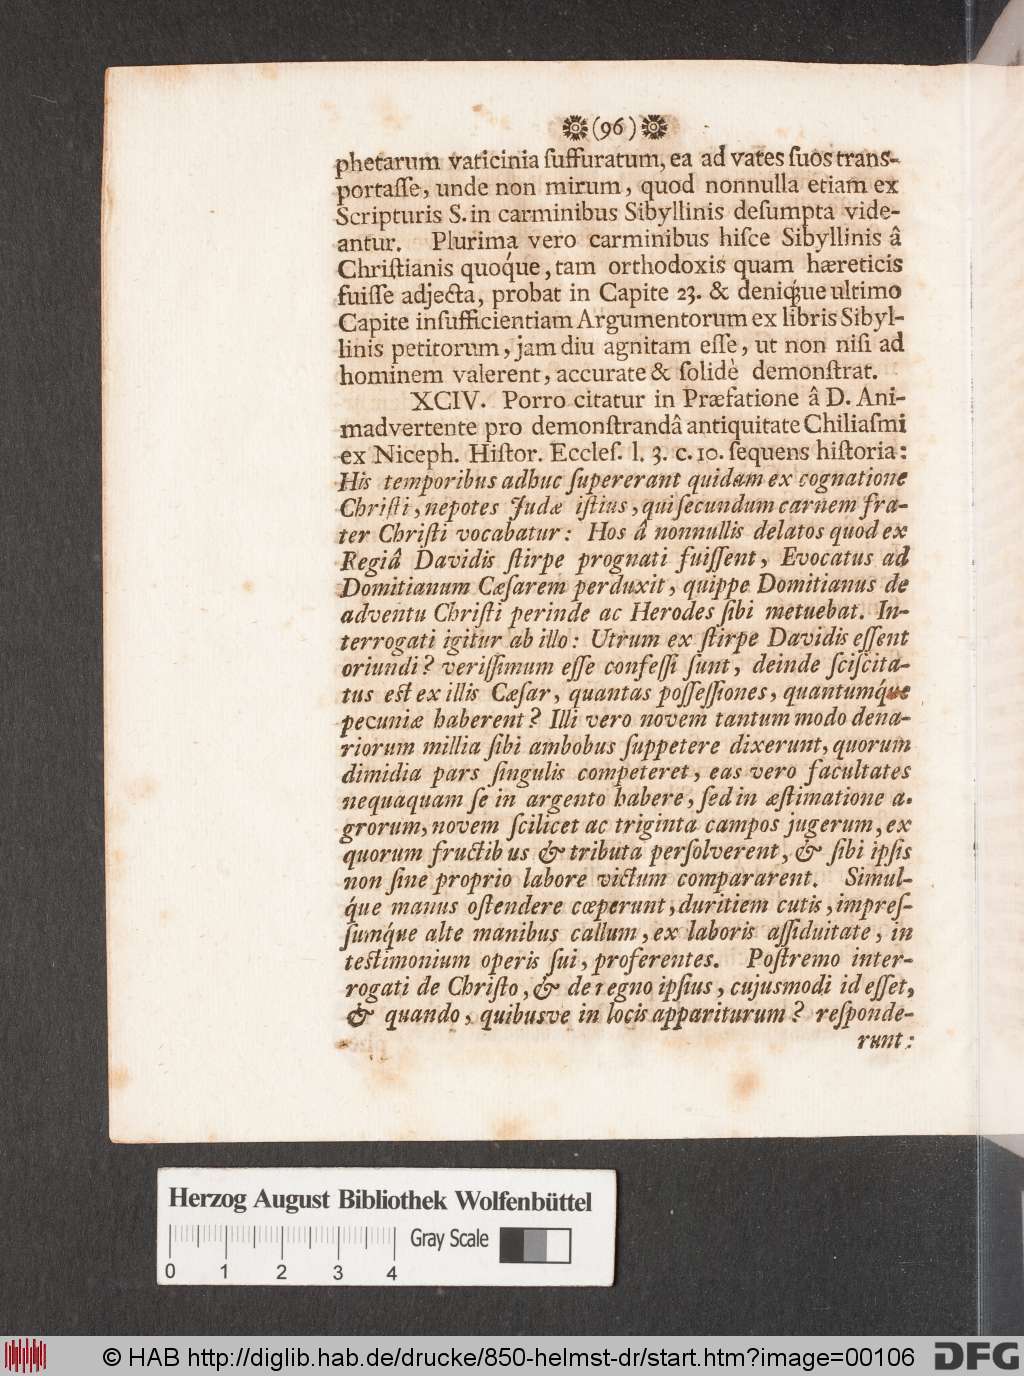 (96)
phetarum vaticinia ſuffuratum, ea ad vates ſuos trans-
portaſſe, unde non mirum, quod nonnulla etiam ex
Scripturis S. in carminibus Sibyllinis deſumpta vide-
antur. Plurima vero carminibus hiſce Sibyllinis â
Chriſtianis quoq́ue, tam orthodoxis quam hæreticis
fuiſſe adjecta, probat in Capite 23. & deniq́ue ultimo
Capite inſufficientiam Argumentorum ex libris Sibyl-
linis petitorum, jam diu agnitam eſſe, ut non niſi ad
hominem valerent, accurate & ſolidè demonſtrat.
XCIV. Porro citatur in Præfatione â D. Ani-
madvertente pro demonſtrandâ antiquitate Chiliaſmi
ex Niceph. Hiſtor. Eccleſ. l. 3. c. 10. ſequens hiſtoria:
His temporibus adhuc ſupererant quidam ex cognatione
Chriſti, nepotes Judæ iſtius, qui ſecundum carnem fra-
ter Chriſti vocabatur: Hos â nonnullis delatos quod ex
Regiâ Davidis ſtirpe prognati fuiſſent, Evocatus ad
Domitianum Cæſarem perduxit, quippe Domitianus de
adventu Chriſti perinde ac Herodes ſibi metuebat. In-
terrogati igitur ab illo: Utrum ex ſtirpe Davidis eſſent
oriundi? veriſſimum eſſe confeſſi ſunt, deinde ſciſcita-
tus est ex illis Cæſar, quantas poſſeſſiones, quantumq́ue
pecuniæ haberent? Illi vero novem tantum modo dena-
riorum millia ſibi ambobus ſuppetere dixerunt, quorum
dimidia pars ſingulis competeret, eas vero facultates
nequaquam ſe in argento habere, ſed in æſtimatione a-
grorum, novem ſcilicet ac triginta campos jugerum, ex
quorum fructib us & tributa perſolverent, & ſibi ipſis
non ſine proprio labore victum compararent. Simul-
q́ue manus oſtendere cœperunt, duritiem cutis, impreſ-
ſumq́ue alte manibus callum, ex laboris aſſiduitate, in
testimonium operis ſui, proferentes. Poſtremo inter-
rogati de Chriſto, & de regno ipſius, cujusmodi id eſſet,
& quando, quibusve in locis appariturum? reſponde-
runt:
Herzog August Bibliothek Wolfenbüttel
Gray Scale
0 1 2 3 4
© HAB http://diglib.hab.de/drucke/850-helmst-dr/start.htm?image=00106
DFG